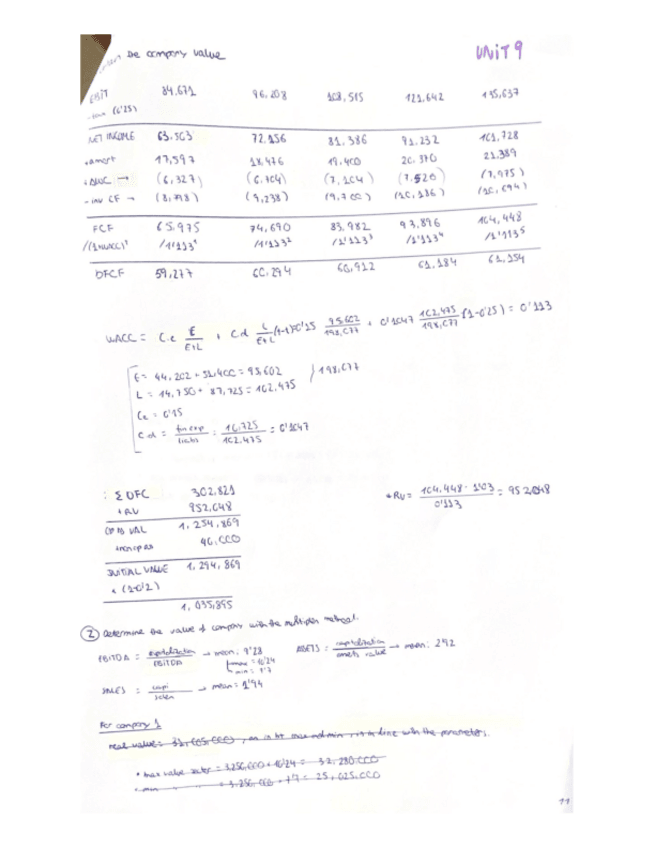 the company value
UNIT 9
EBIT 84,671 96,208 108,515 121,642 135,637
(0'25)
NET INCOME 63.503 72.156 81.386 91.232 101.728
+amort 17,597 18.476 19.400 20.370 21.389
+ΔWC → (6,327) (6.704) (7,104) (7.520) (7,975)
- inv CF → (8,798) (9,238) (9,700) (10,186) (10,694)
FCF 65.975 74,690 83.982 93,896 104,448
/(1+WACC)¹ /1'113¹ /1'113² /1'113³ /1'113⁴ /1'113⁵
DFCF 59,277 60.294 60,912 61,184 61,154
WACC = C.e E/E+L + C.d L/E+L (1-t) = 0'15 95.602/198,077 + 0'1047 102,475/198,077 (1-0'25) = 0'113
E = 44,202 + 51,400 = 95,602 } 198,077
L = 14,750 + 87,725 = 102,475
Ce = 0'15
C.d = fin exp/liabs : 10,725/102,475 = 0'1047
: Σ DFC 302,821
+RV 952,048
+RV = 104,448 · 1'03/0'113 = 952,048
VAL 1,254,869
40,000
INITIAL VALUE 1,294,869
× (1-0'2)
1,035,895
2 Determine the value of company with the multiples method.
EBITDA = capitalization/EBITDA → mean: 9'28 ASSETS : capitalization/assets value → mean: 2'92
max = 10'24
min = 7'7
SALES : capi/sales → mean: 1'94
For company 1
real value = 32,605,000, as is max and min, is in line with the parameters.
• max value = 3.256,000 · 10'24 = 33,280.000
• min = 3.256,000 · 7'7 = 25,025.000
11